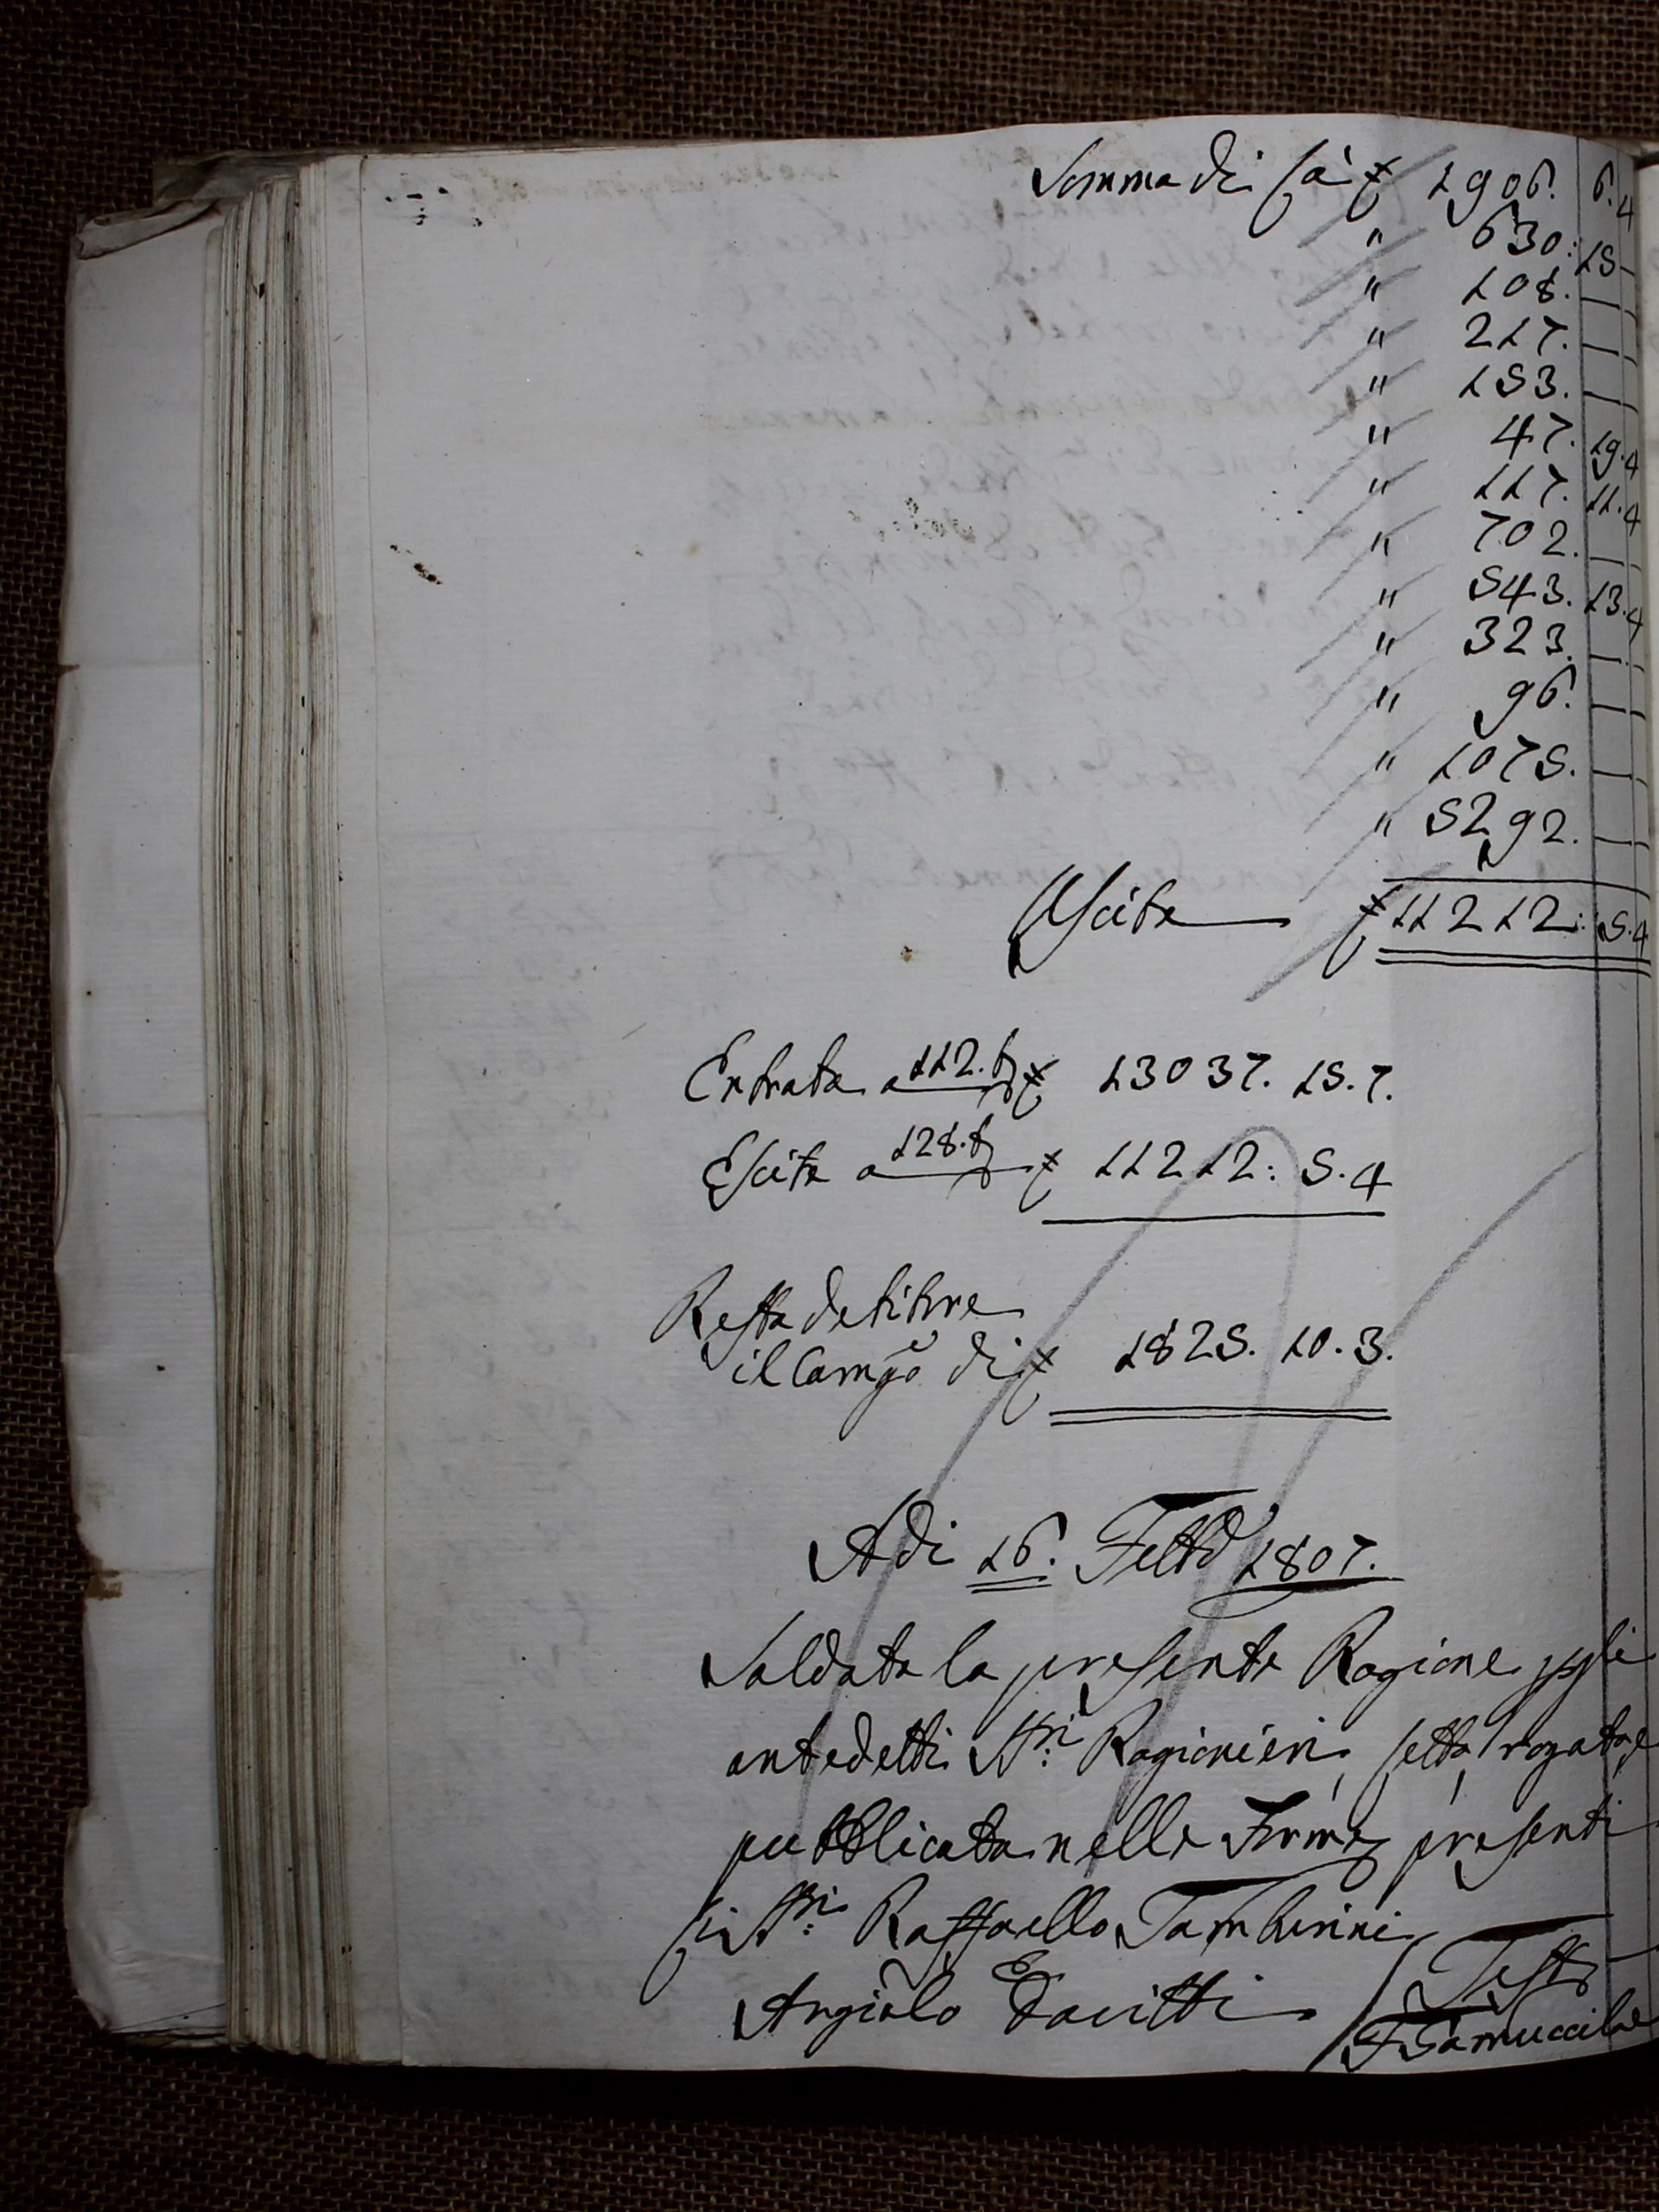 Somma di Cà £ 1906. 6.4
" 630: 15 —
" 108. —
" 217. —
" 153. —
" 47. 19.4
" 117. 11.4
" 702. —
" 543. 13.4
" 323. —
" 96. —
" 1075. —
" 5292. —
Uscita £ 11212: 5.4
Entrata a 112.t £ 13037. 15.7.
Escita a 128.t £ 11212: 5.4
Resta debitore
il Camgo di £ 1825. 10.3.
Adi 16. Febb 1807.
Saldata la presente Ragione p gli
antedetti SSri Ragionieri, letta, rogata, e
pubblicata nelle Forme, presenti
i SSri Raffaello Tamburini
Angiolo Davitti Testi